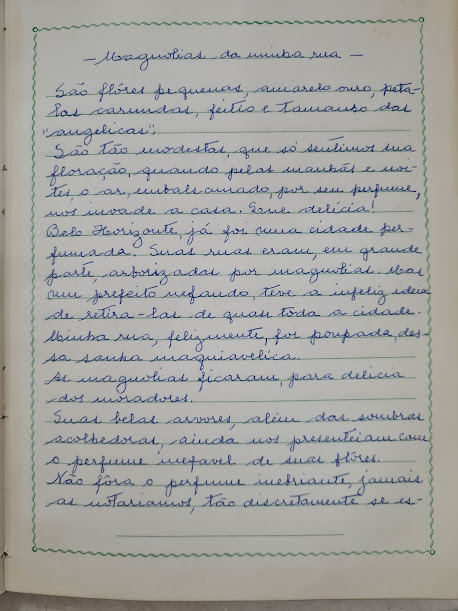 - Magnolias da minha rua -
São flôres pequenas, amarelo ouro, péta-
las carnudas, feitio e tamanho das
"angelicas".
São tão modestas, que só sentimos sua
floração, quando pelas manhãs e noi-
tes, o ar, embalsamado, por seu perfume,
nos invade a casa. Que delicia!
Belo Horizonte, já foi uma cidade per-
fumada. Suas ruas eram, em grande
parte, arborizadas por magnolias. Mas
um prefeito nefando, teve a infeliz ideia
de retira-las de quasi toda a cidade.
Minha rua, felizmente, foi poupada, des-
sa sanha maquiavelica.
As magnolias ficaram, para delicia
dos moradores.
Suas belas arvores, além das sombras
acolhedoras, ainda nos presenteiam com
o perfume inefavel de suas flôres.
Não fôra o perfume inebriante, jamais
as notariamos, tão discretamente se es-